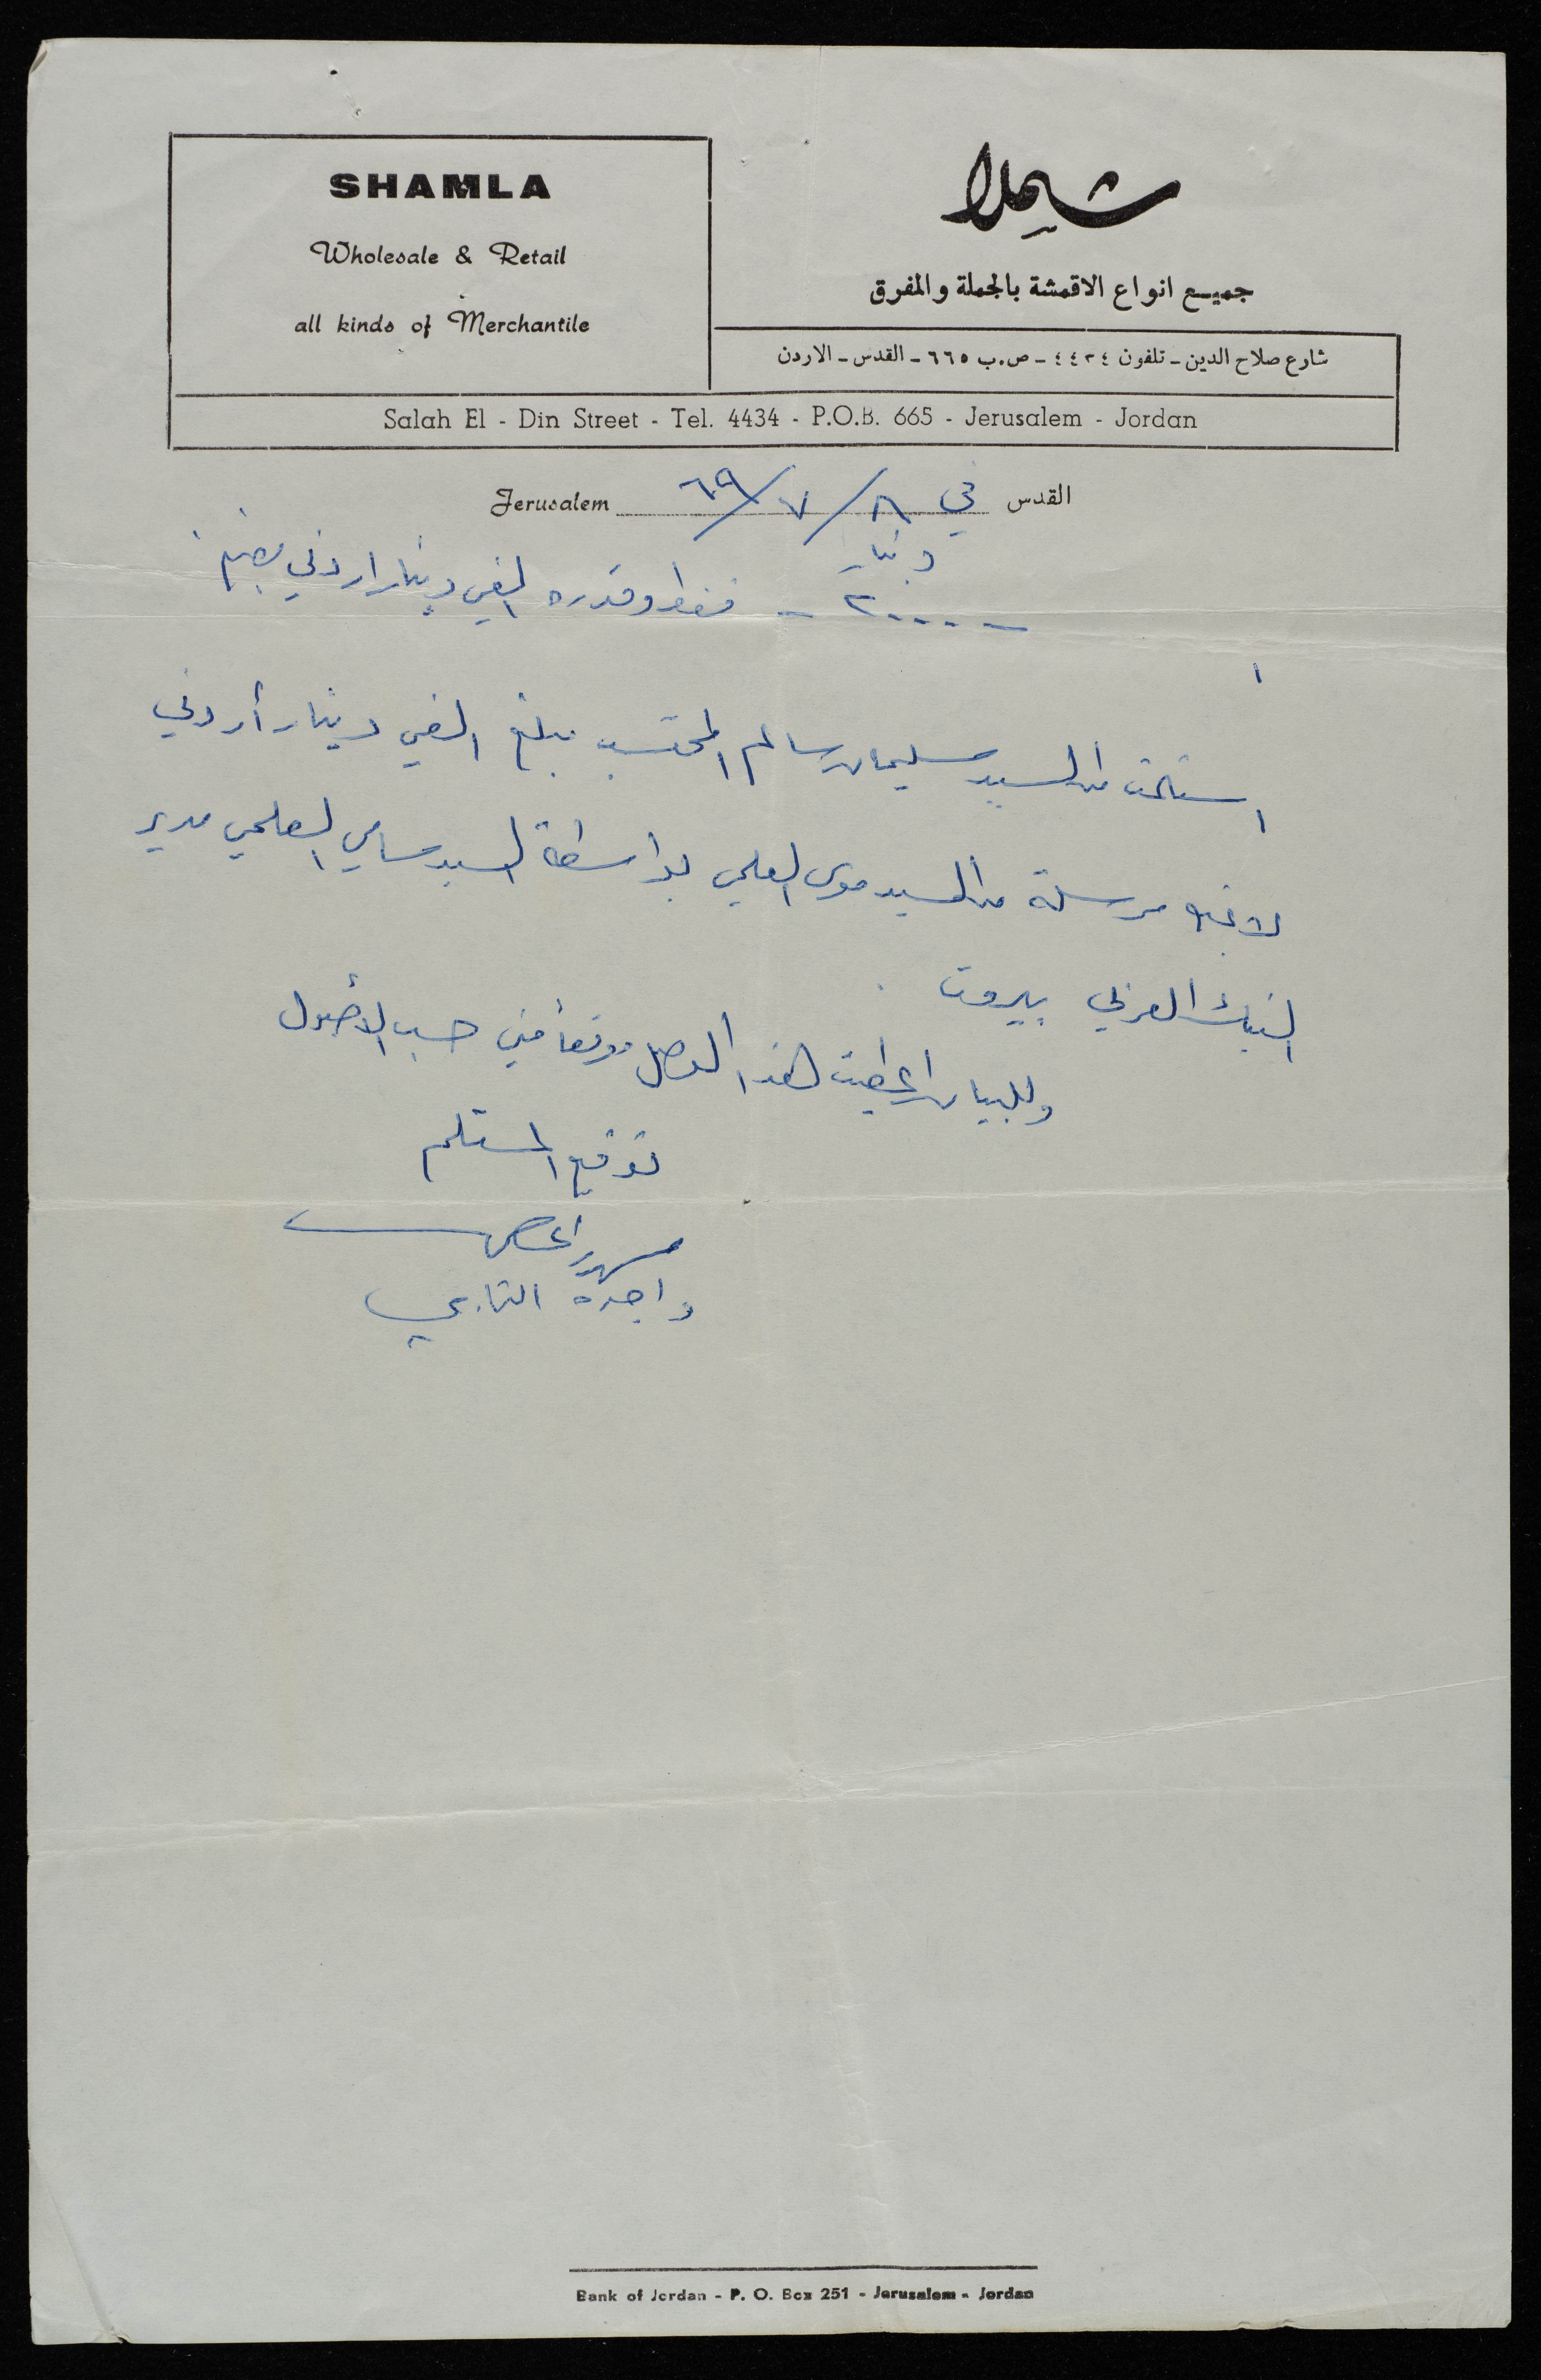 SHAMLA
Wholesale & Retail
all kinds of Merchantile
شيملا
جميع انواع الاقمشة بالجملة والمفرق
شارع صلاح الدين - تلفون ٤٤٣٤ - ص.ب ٦٦٥ - القدس - الاردن
Salah El - Din Street - Tel. 4434 - P.O.B. 665 - Jerusalem - Jordan
القدس في ٦٩/٧/ Jerusalem
دينار
فقط وقدره الفي دينار اردني
استلمت من السيد سليمان سالم المحتسب مبلغ الفي دينار أردني
لا غير مرسلة من السيد موسى العلمي بواسطة السيد سامي العلمي مدير
البنك العربي بيروت .
وللبيان اعطيت هذا الوصل موقعاً مني حسب الأصول
توقيع المستلم
واجدة التاجي
Bank of Jordan - P. O. Box 251 - Jerusalem - Jordan